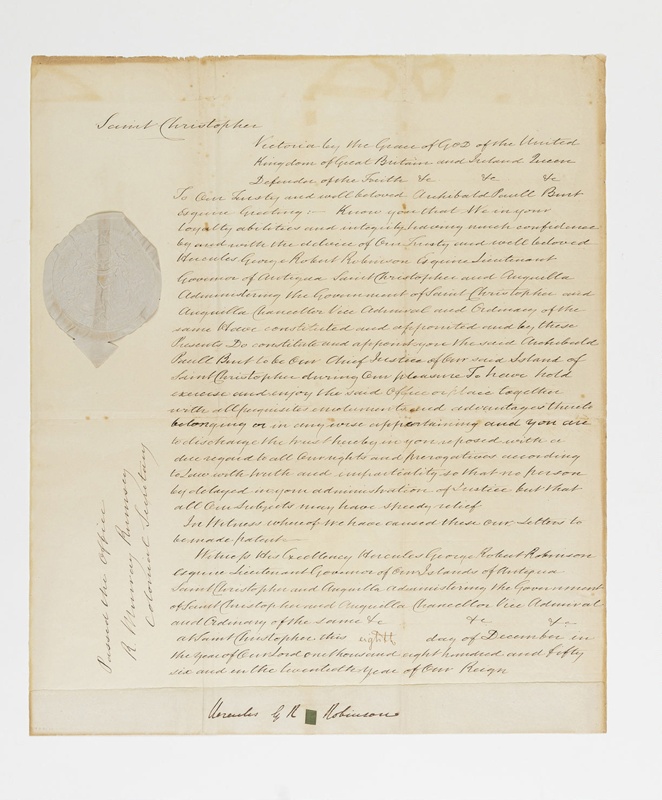 Saint Christopher
Victoria by the Grace of GOD of the United
Kingdom of Great Britain and Ireland Queen
Defender of the Faith &c &c &c
To Our Trusty and well beloved Archibald Paull Burt
Esquire Greeting:— Know you that We in your
loyalty abilities and integrity having much confidence
by and with the advice of Our Trusty and well beloved
Hercules George Robert Robinson Esquire Lieutenant
Govenor of Antigua Saint Christopher and Anguilla
Administering the Government of Saint Christopher and
Anguilla Chancellor Vice Admiral and Ordinary of the
same Have constituted and appointed and by these
Presents Do constitute and appoint you the said Archibald
Paull Burt to be Our Chief Justice of Our said Island of
Saint Christopher during Our pleasure To have hold
exercise and enjoy the said Office or place together
with all perquisites emoluments and advantages thereto
belonging or in any wise appertaining and you are
to discharge the trust hereby in you reposed with a
due regard to all Our rights and prerogatives according
to Law with truth and impartiality so that no person
by delayed in your administration of Justice but that
all Our Subjects may have speedy relief
In Witness whereof We have caused these Our Letters to
be made patent—
Witness His Excellency Hercules George Robert Robinson
Esquire Lieutenant Governor of Our Islands of Antigua
Saint Christopher and Anguilla Administering the Government
of Saint Christopher and Anguilla Chancellor Vice Admiral
and Ordinary of the same &c &c &c
at Saint Christopher this eighth day of December in
the Year of Our Lord one thousand eight hundred and fifty
six and in the twentieth Year of Our Reign
Hercules G R Robinson
Passed the Office
R Murray Rumsey
Colonial Secretary